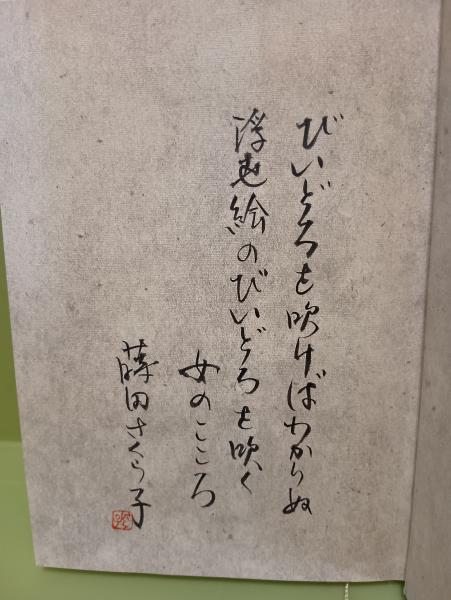 びいどろを吹けばわからぬ
浮世絵のびいどろを吹く
女のこころ
蒔田さくら子